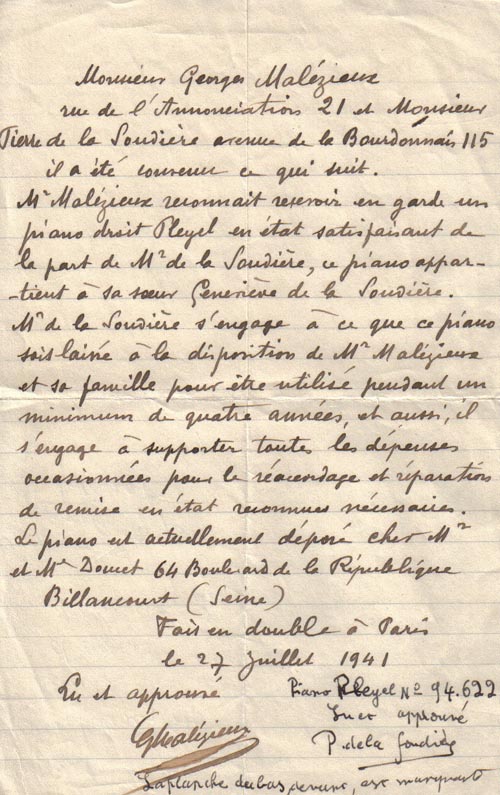 Monsieur Georges Malézieux
rue de l'Annonciation 21 et Monsieur
Pierre de la Soudière avenue de la Bourdonnais 115
il a été convenu ce qui suit.
Mr Malézieux reconnait recevoir en garde un
piano droit Pleyel en état satisfaisant de
la part de Mr de la Soudière, ce piano appar-
-tient à sa sœur Geneviève de la Soudière.
Mr de la Soudière s'engage à ce que ce piano
soit laissé à la disposition de Mr Malézieux
et sa famille pour être utilisé pendant un
minimum de quatre années, et aussi, il
s'engage à supporter toutes les dépenses
occasionnées pour le réaccordage et réparations
de remise en état reconnues nécessaires.
Le piano est actuellement déposé chez Mr
et Me Doucet 64 Boulevard de la République
Billancourt (Seine)
Fait en double à Paris
le 27 Juillet 1941
Lu et approuvé
Piano Pleyel No 94.622
Lu et approuvé
GMalézieux
P. de la Soudière
La planche du bas devant, est manquant